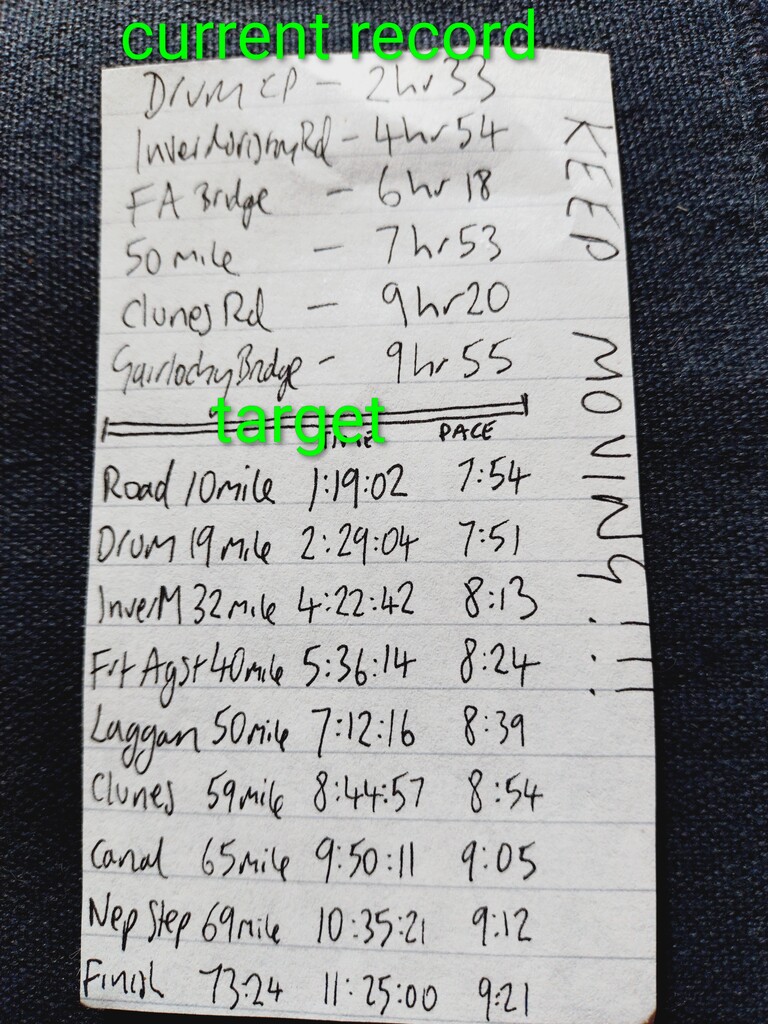 current record
Drum CP - 2hr33
InverMoristonRd - 4hr54
FA Bridge - 6hr 18
50 mile - 7hr53
Clunes Rd - 9hr20
Gairlochy Bridge - 9hr55
target
TIME PACE
Road 10mile 1:19:02 7:54
Drum 19mile 2:29:04 7:51
InverM 32mile 4:22:42 8:13
Frt Agst 40mile 5:36:14 8:24
Laggan 50mile 7:12:16 8:39
Clunes 59mile 8:44:57 8:54
Canal 65mile 9:50:11 9:05
Nep Step 69mile 10:35:21 9:12
Finish 73:24 11:25:00 9:21
KEEP MOVING!!!